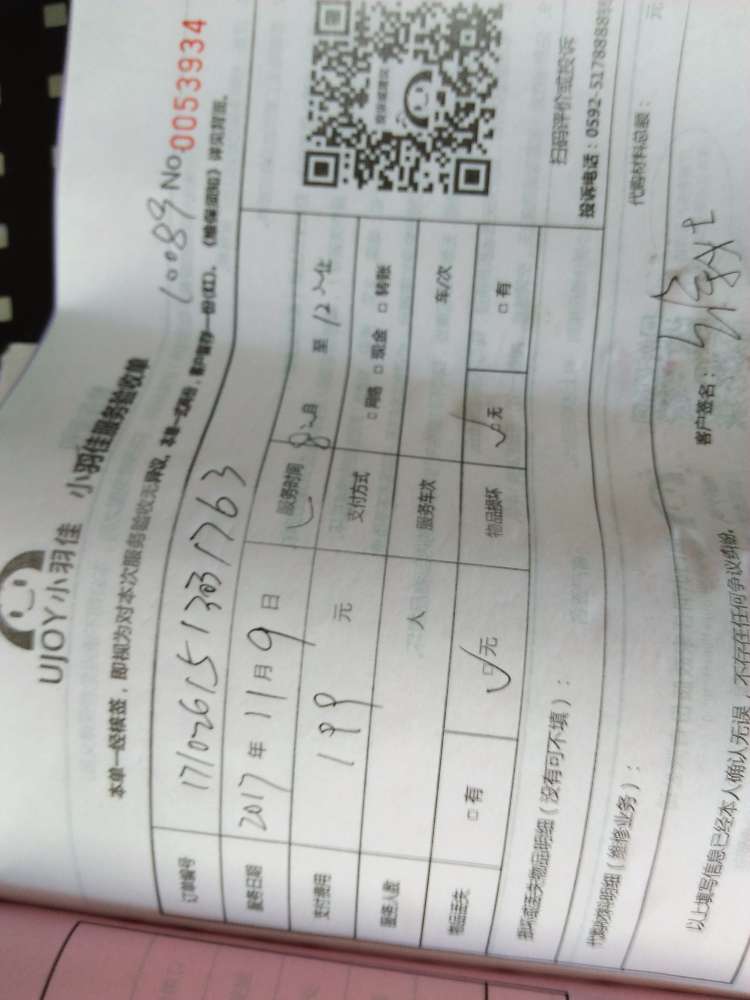 UJOY小羽佳 小羽佳服务验收单
10089 No 0053934
本单一经核签，即视为对本次服务验收无异议。本单一式两份，客户留存一份(红)。《维保须知》详见背面。
订单编号 1710261513031763
服务日期 2017年11月9日 服务时间 至
支付费用 199 元 支付方式 □网络 □现金 □转账
服务人数 人 服务车次 车/次
物品丢失 □有 □无 物品损坏 □无 □有
损坏或丢失物品明细（没有可不填）：
代购材料明细（维修业务）：
代购材料总额： 元
以上填写信息已经本人确认无误，不存在任何争议纠纷。
客户签名：
扫码评价或投诉
投诉电话：0592-5178888转